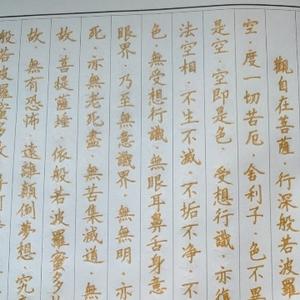 觀自在菩薩·行深般若波羅
空·度一切苦厄·舍利子·色不異
是空·空即是色 受想行識·亦
法空相·不生不滅·不垢不淨·不
色·無受想行識·無眼耳鼻舌身意
眼界·乃至無意識界 無無明·亦
死·亦無老死盡·無苦集滅道·無
故·菩提薩埵·依般若波羅蜜多
故·無有恐怖·遠離顛倒夢想·究
般若波羅蜜多故